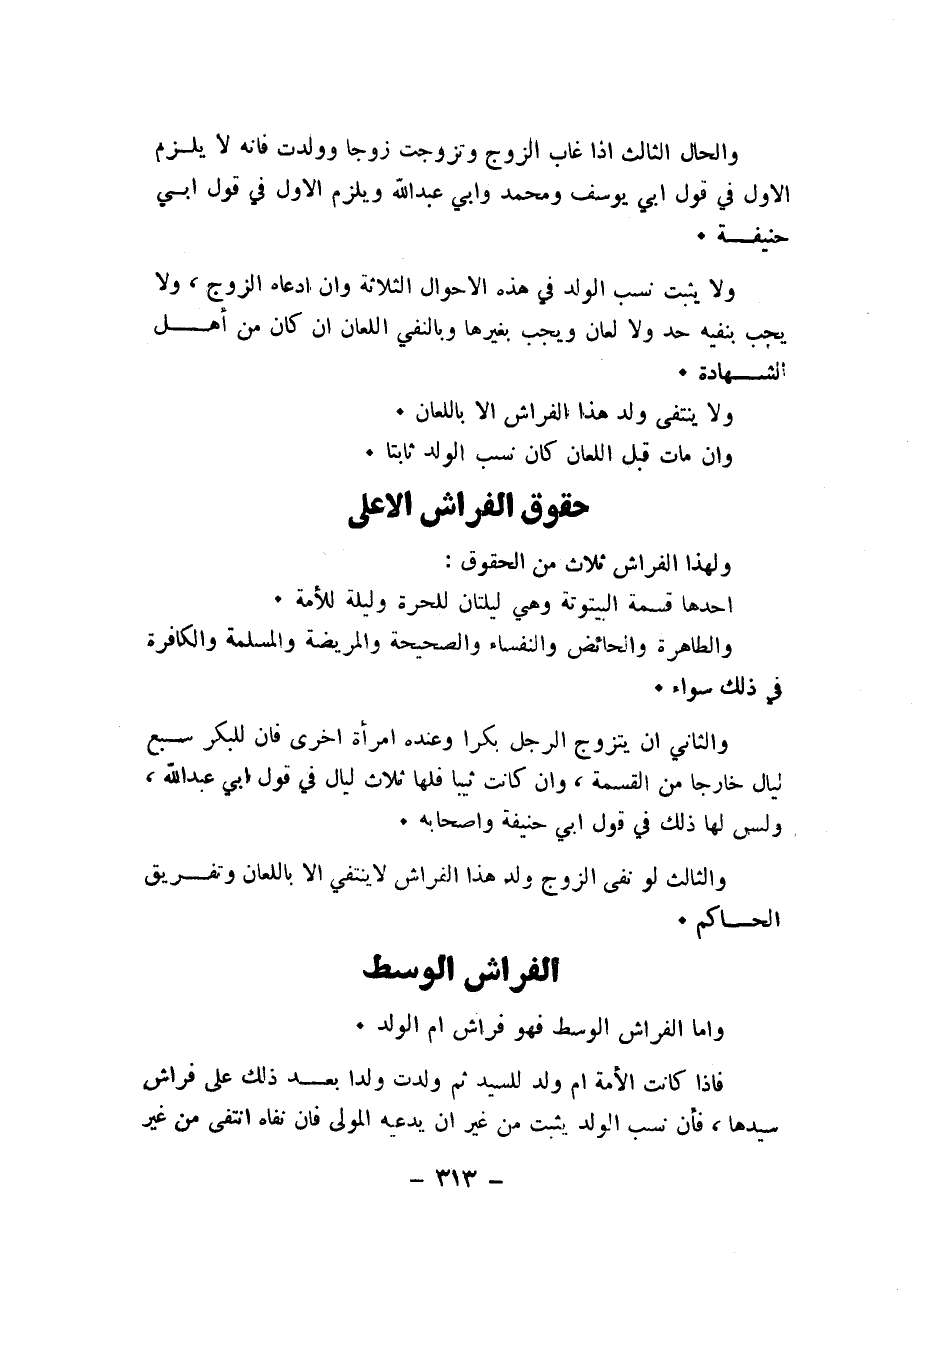 والحال الثالث اذا غاب الزوج وتزوجت زوجا وولدت فانه لا يلـزم
الاول في قول ابي يوسف ومحمد وابي عبدالله ويلزم الاول في قول ابـي
حنيفـــة ٠
ولا يثبت نسب الولد في هذه الاحوال الثلاثة وان ادعاه الزوج ، ولا
يجب بنفيه حد ولا لعان ويجب بغيرها وبالنفي اللعان ان كان من أهـــل
الشـــهادة ٠
ولا ينتفى ولد هذا الفراش الا باللعان ٠
وان مات قبل اللعان كان نسب الولد ثابتا ٠
حقوق الفراش الاعلى
ولهذا الفراش ثلاث من الحقوق :
احدها قسمة البيتوتة وهي ليلتان للحرة وليلة للأمة ٠
والطاهرة والحائض والنفساء والصحيحة والمريضة والمسلمة والكافرة
في ذلك سواء ٠
والثاني ان يتزوج الرجل بكرا وعنده امرأة اخرى فان للبكر ســبع
ليال خارجا من القسمة ، وان كانت ثيبا فلها ثلاث ليال في قول ابي عبدالله ،
وليس لها ذلك في قول ابي حنيفة واصحابه ٠
والثالث لو نفى الزوج ولد هذا الفراش لاينتفي الا باللعان وتفـــريق
الحـــاكم ٠
الفراش الوسط
واما الفراش الوسط فهو فراش ام الولد ٠
فاذا كانت الأمة ام ولد للسيد ثم ولدت ولدا بعـــد ذلك على فراش
سيدها ، فأن نسب الولد يثبت من غير ان يدعيه المولى فان نفاه انتفى من غير
– ٣١٣ –